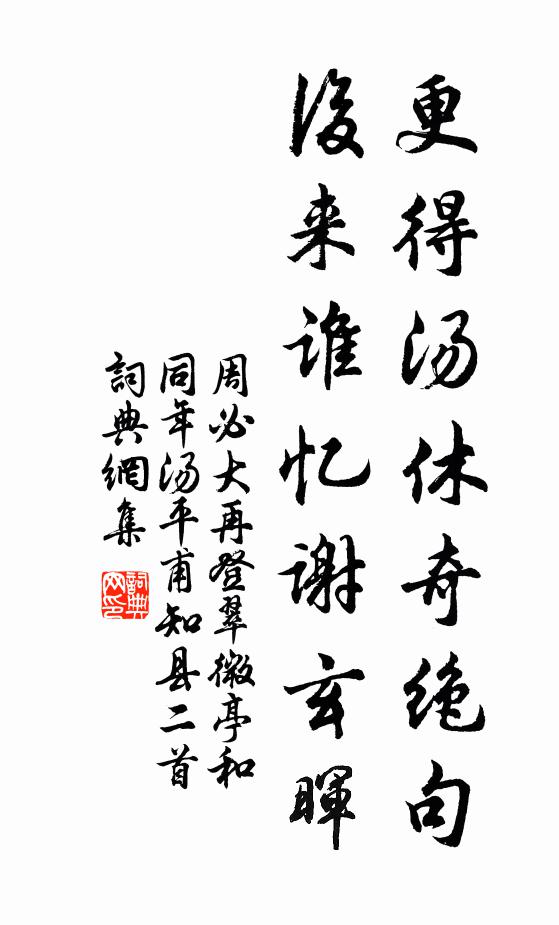 更得汤休奇绝句
後来谁忆谢玄暉
周必大再登翠微亭和
同年汤平甫知县二首
詞典網集
詞典网印